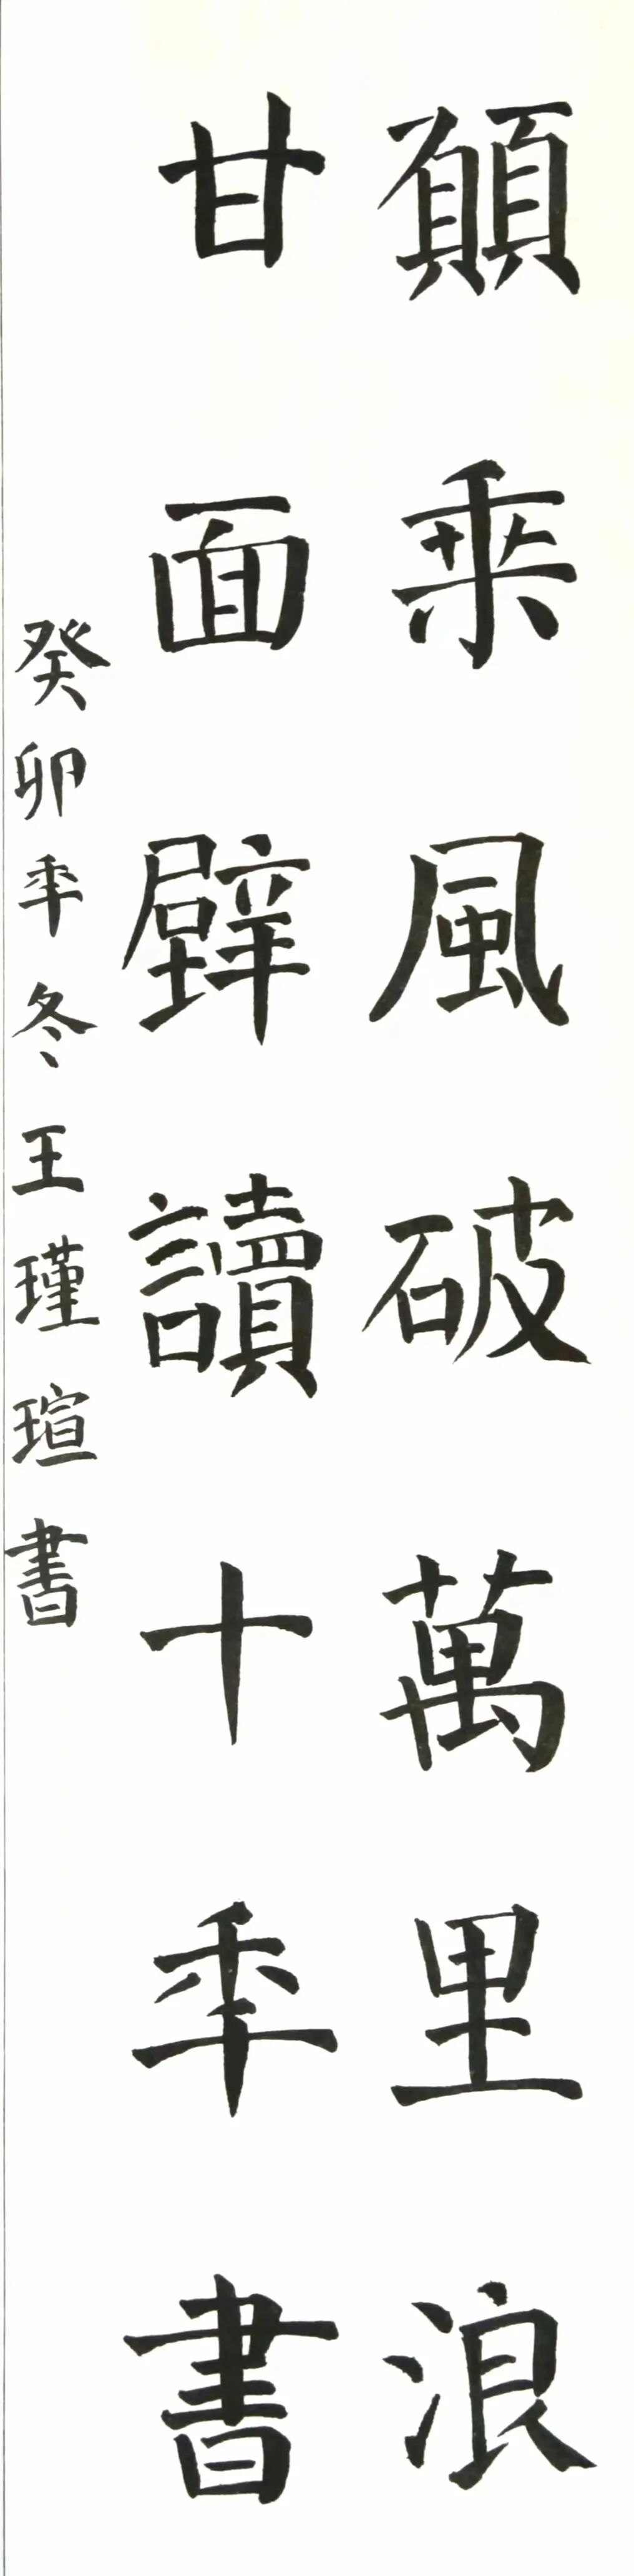 願乘風破萬里浪
甘面壁讀十秊書
癸卯秊冬王瑾瑄書